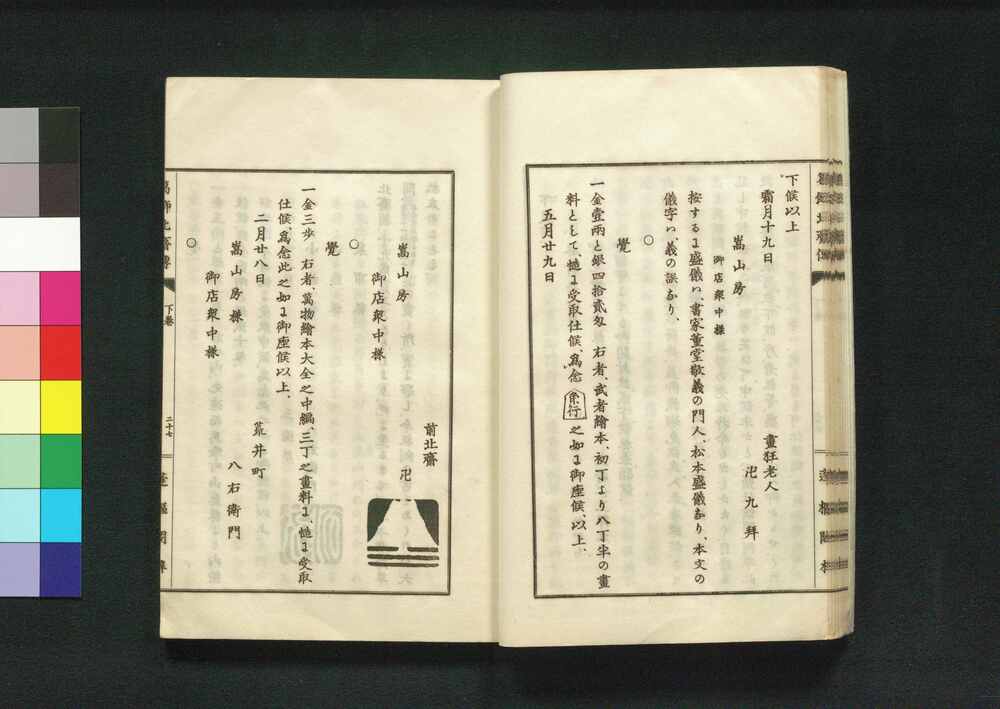 下候以上
霜月十九日
畫狂老人
卍九拜
嵩山房
御店衆中樣
按するに盛儀ハ、書家董堂敬義の門人、松本盛儀なり、本文の
儀字ハ、義の誤なり、
○
覺
一金壹兩と銀四拾貳匁　右者、武者繪本、初丁より八丁半の畫
料として、慥に受取仕候、爲念之如に御座候、以上、
五月廿九日
前北齋
卍
嵩山房
御店衆中樣
○
覺
一金三步　右者、萬物繪本大全之中編、三丁之畫料に、慥に受取
仕候、爲念此之如に御座候以上、
二月廿八日
荒井町
八右衞門
嵩山房樣
御店衆中樣
○
下卷
二十七